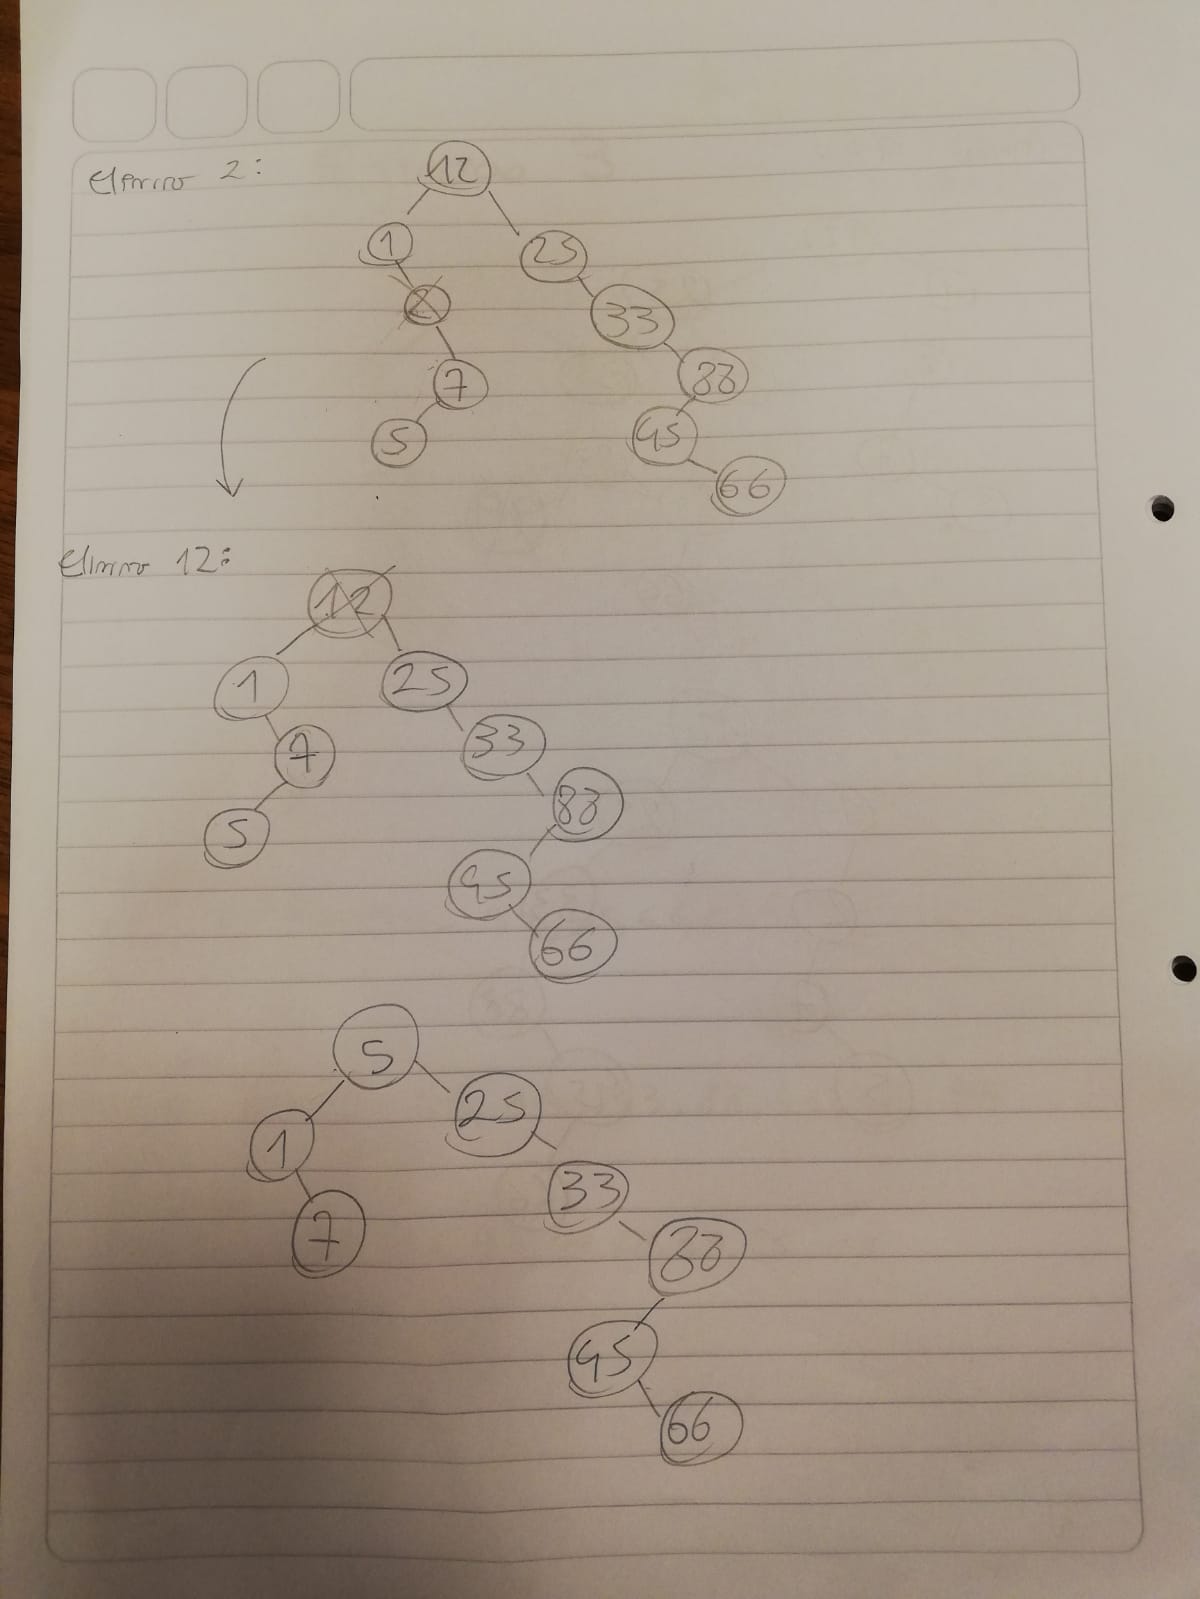 Elimino 2:
12
1
25
2
33
7
88
5
45
66
Elimino 12:
12
1
25
7
33
5
88
45
66
5
25
1
33
7
88
45
66